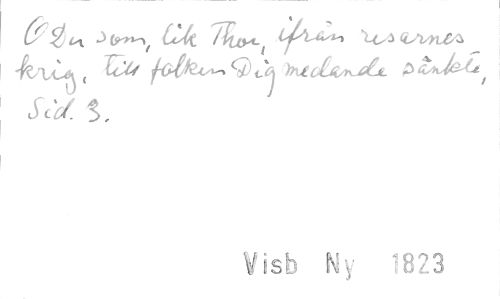 O Du som, lik Thor, ifrån resarnes
krig, till folken Dig medande sänkte,
Sid. 3.
Visb Ny 1823